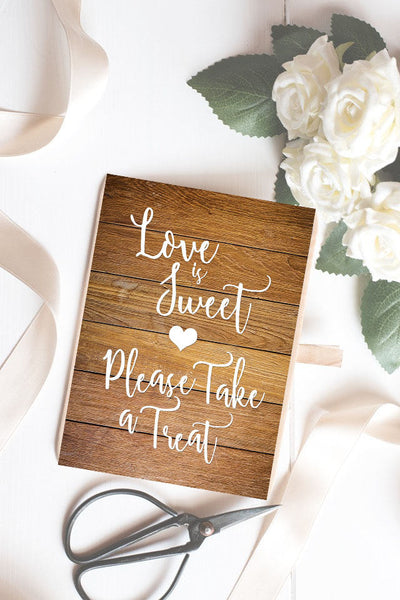 Love
is
Sweet
Please Take
a Treat